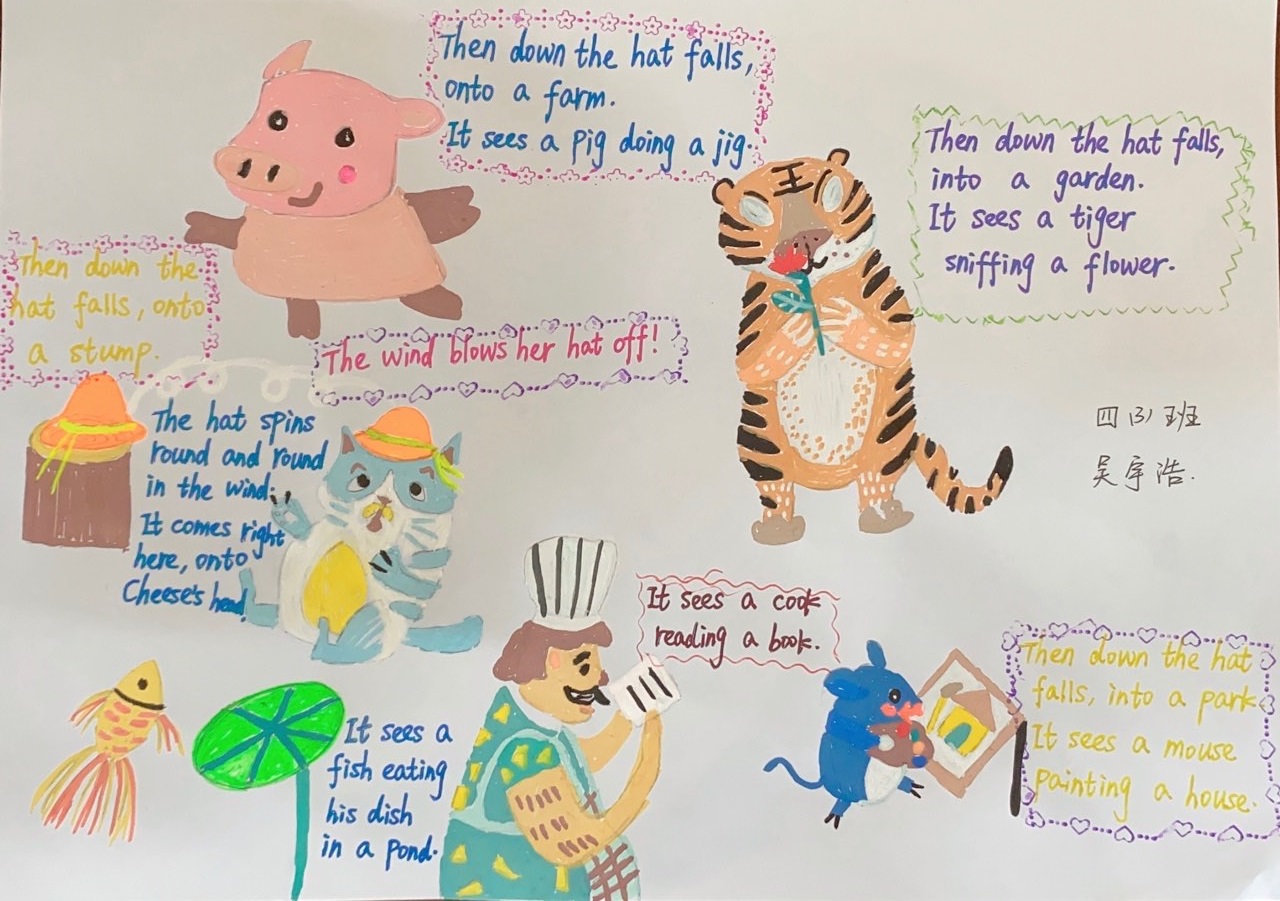 Then down the hat falls,
onto a farm.
It sees a pig doing a jig.
Then down the hat falls,
into a garden.
It sees a tiger
sniffing a flower.
Then down the
hat falls, onto
a stump.
The wind blows her hat off!
The hat spins
round and round
in the wind.
It comes right
here, onto
Cheese's head!
王
四(3)班
吴宇浩.
It sees a cook
reading a book.
Then down the hat
falls, into a park.
It sees a mouse
painting a house.
It sees a
fish eating
his dish
in a pond.